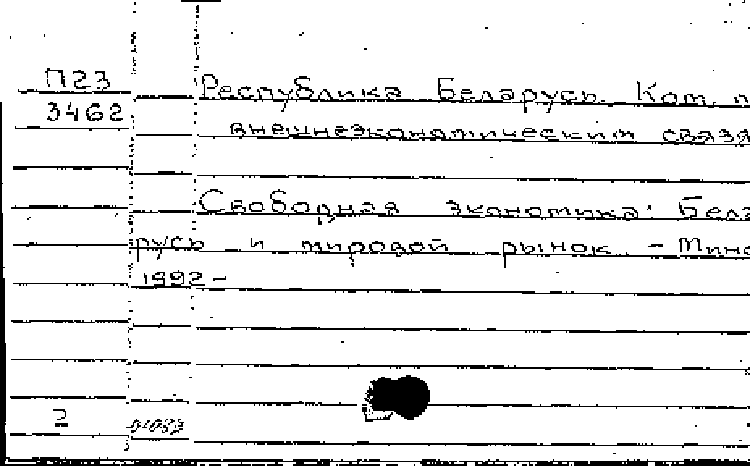 П23
3462
Республика Беларусь. Ком. п
внешнеэкономическим связя
Свободная экономика: Бела
русь и мировой рынок. - Минс
1992 -
2
01083